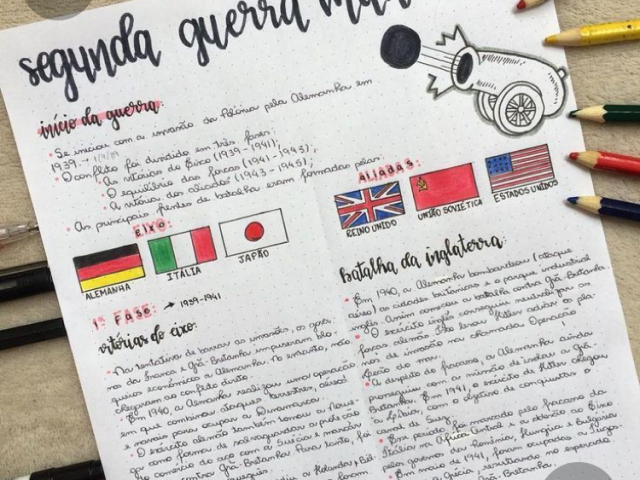 segunda guerra
início da guerra:
• Se iniciou com a invasão da Polônia pela Alemanha em
1939 → 1/9/39
• O conflito foi dividido em três fases:
• As vitórias do Eixo (1939-1941);
• O equilíbrio das forças (1941-1943);
• A vitória dos aliados (1943-1945);
• As principais frentes de batalha eram formadas pelos:
EIXO:
ALEMANHA
ITÁLIA
JAPÃO
ALIADAS:
REINO UNIDO
UNIÃO SOVIÉTICA
ESTADOS UNIDOS
1ª FASE: → 1939-1941
vitórias do eixo:
• Na tentativa de barrar as invasões, os gover
nos da França e Grã-Bretanha impuseram blo
queio econômico a Alemanha. No entanto, não
chegaram ao conflito direto.
• Em 1940, a Alemanha realizou uma operação
em que combinou ataques terrestres, aéreos
e navais para ocupar a Dinamarca.
• O exército alemão também tomou a Noru
ega como forma de salvaguardar a proteção
do comércio do aço com a Suécia e marcar
contra Grã-Bretanha. Para tanto, foi
a Holanda, Bél
batalha da inglaterra:
• Em 1940, a Alemanha bombardeou (ataque
aéreo) as cidades britânicas e o parque industrial
inglês. Assim começou a batalha contra Grã-Bretanha.
• O exército inglês conseguiu neutralizar as
forças alemãs. Isso levou Hitler adiar os pla
nos de invasão na chamada Operação
Leão do mar.
• A despeito do fracasso, a Alemanha ainda
prosseguiu com a missão de isolar a Grã-
Bretanha. Em 1941, o exército de Hitler chegou
a Líbia, com o objetivo de conquistar o
canal de Suez.
• Esse período foi marcado pelo fracasso da
Itália na África Central e a adesão ao Eixo
pelos governos da Romênia, Hungria e Bulgária
• Em maio de 1941, foram ocupadas a Iugos
a Grécia, resultando no esperado
Grã-Bretanha.